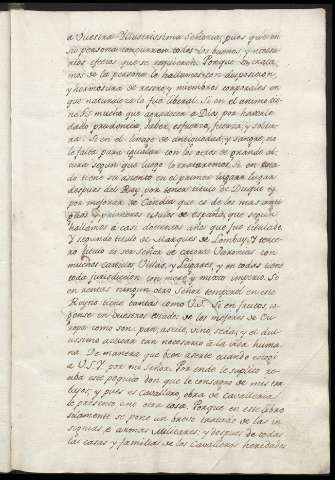 a Vuestra Illustrissima Señoria; pues que en
su persona concurren todos los buenos y necesa-
rios efetos que se requieren. Porque si trata-
mos de la persona le hallamos con disposicion,
y hermosura de rostro y miembros corporales en
que naturaleza le fue liberal. Si en el animo tie-
ne V.S. mucho que agradecer a Dios por haverle
dado prudencia, saber, esfuerzo, fuerza, y valen-
tia. Si en el linage de antiguedad, y sangre no
le falta para igualarse con los otros de grande al-
tura segun que luego lo contaremos. Si en esta-
do tiene su asiento en el primero lugar luego
despues del Rey por tener titulo de Duque; y
por mejorar de Gandia que es de los mas anti-
guos y primeros estados de españa, que segun
hallamos a casi docientos años que fue titulado.
Y segundo titulo de Marques de Lombay, Y terce-
ro titulo es ser Señor de catorce Baronias con
muchos castillos, Villas, y Lugares, y en todas tiene
toda jurisdiccion con mero y mixto imperio. Si
en rentas ningun otro Señor temporal en este
Reyno tiene tantas como V.S. Si en frutos co-
gense en vuestros estados de los mejores de Eu-
ropa como son: pan, aseite, vino, sedas, y el dul-
cissimo azucar tan necessario a la vida huma-
na. De manera que bien acerte quando escogi
a V.S.Y. por mi Señor. Por ende le suplico re-
ciba este pequeño don que le consagro de mis tra-
bajos, y pues es cavallero, obra de cavalleria
le presento one otra cosa. Porque en este libro
solamente se pone un breve tratado de las in-
signias, e armas Militares; y despues de todas
las casas y familias de los cavalleros heredados